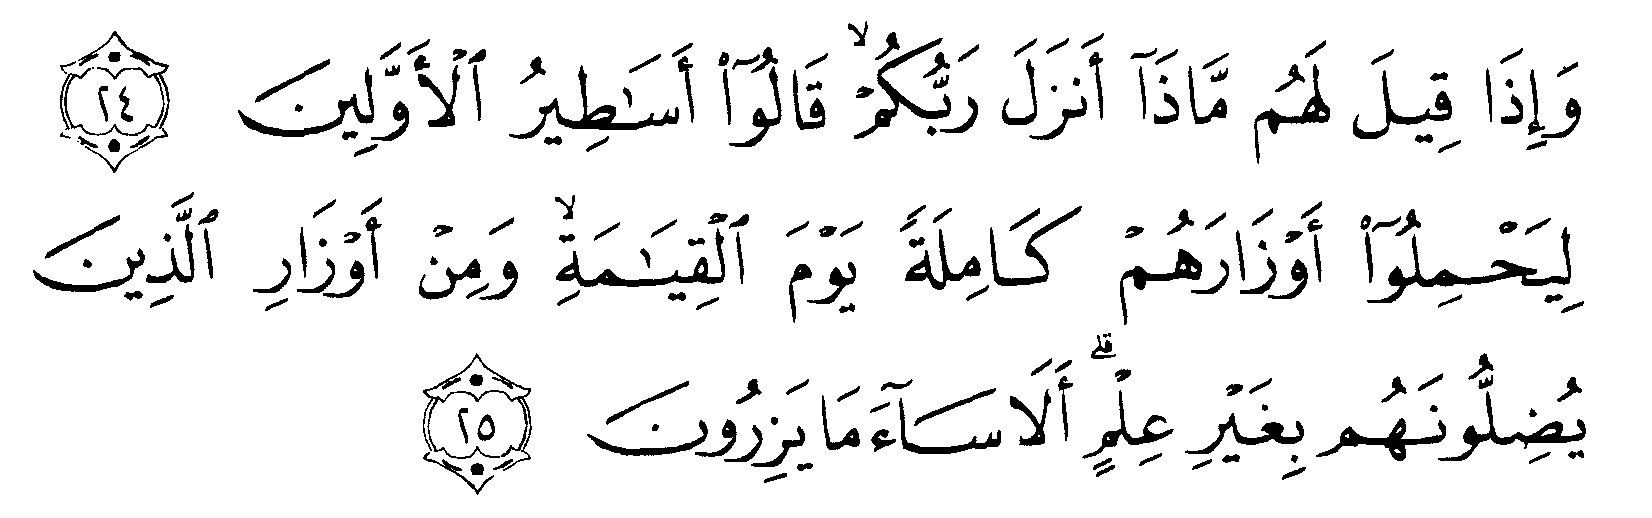 وَإِذَا قِيلَ لَهُم مَّاذَآ أَنزَلَ رَبُّكُمۡۙ قَالُوٓاْ أَسَٰطِيرُ ٱلۡأَوَّلِينَ ٢٤
لِيَحۡمِلُوٓاْ أَوۡزَارَهُمۡ كَامِلَةٗ يَوۡمَ ٱلۡقِيَٰمَةِۙ وَمِنۡ أَوۡزَارِ ٱلَّذِينَ
يُضِلُّونَهُم بِغَيۡرِ عِلۡمٍۗ أَلَا سَآءَ مَا يَزِرُونَ ٢٥